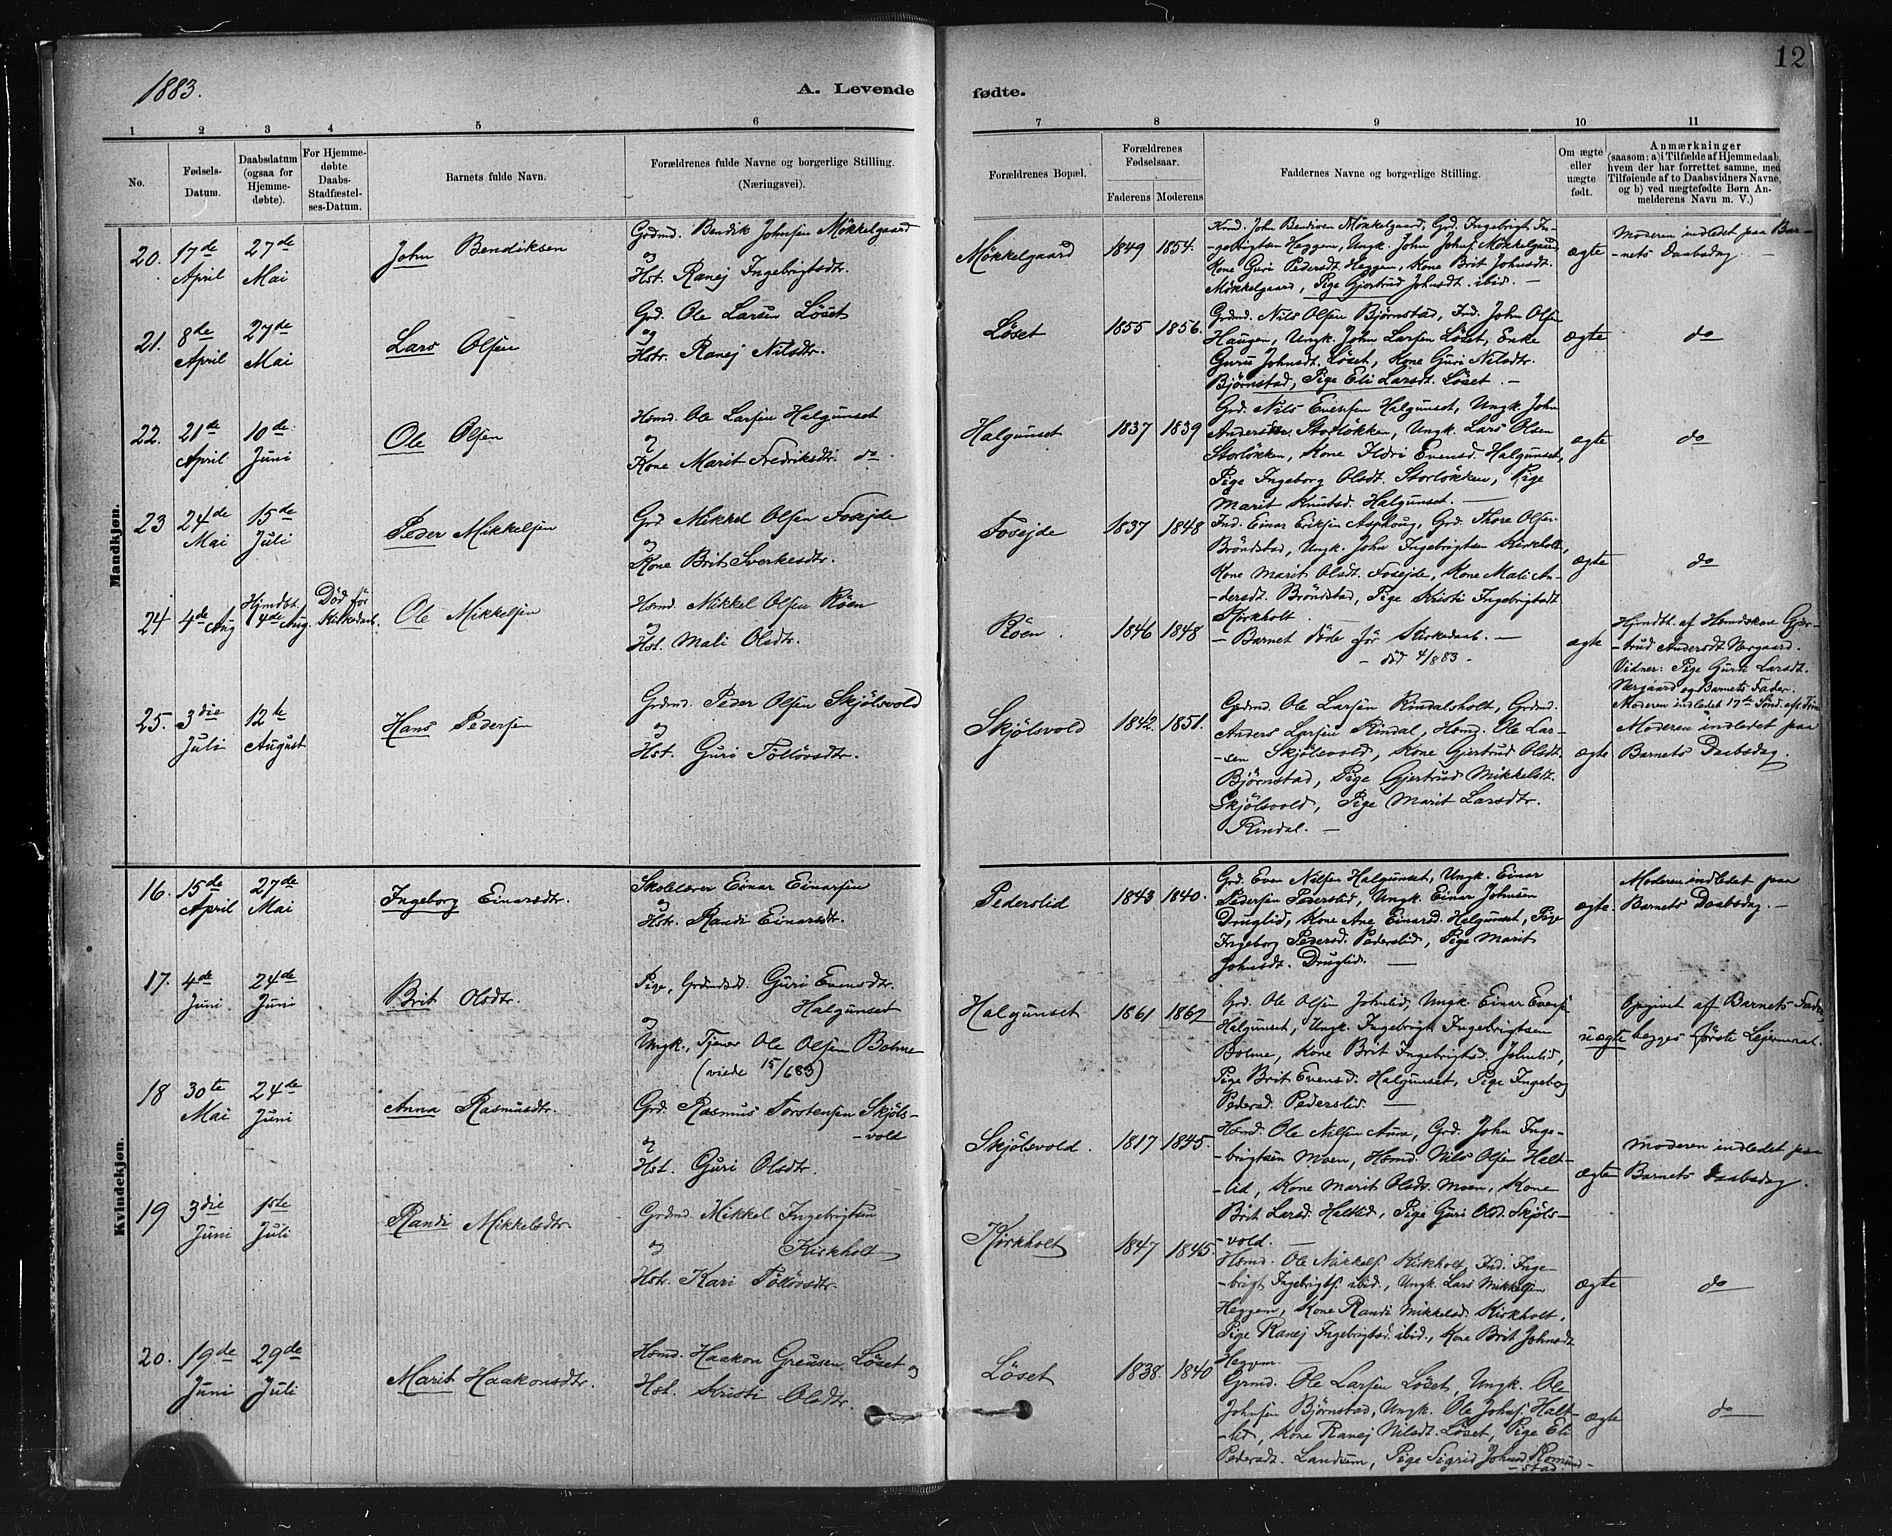 12
1883.
A. Levende fødte.
1 2 3 4 5 6 7 8 9 10 11
No.
Fødsels-Datum.
Daabsdatum (ogsaa for Hjemme-døbte).
For Hjemme-døbte Daabs-Stadfæstel-ses-Datum.
Barnets fulde Navn.
Forældrenes fulde Navne og borgerlige Stilling.
(Næringsvei).
Forældrenes Bopæl.
Forældrenes Fødselsaar.
Faderens Moderens
Faddernes Navne og borgerlige Stilling.
Om ægte eller uægte født.
Anmærkninger
(saasom: a) i Tilfælde af Hjemmedaab, hvem der har forrettet samme, med Tilføiende af to Daabsvidners Navne, og b) ved uægtefødte Børn An-melderens Navn m. V.)
Mandkjøn.
20. 17de April 27de Mai
John Bendiksen
Grdmd. Bendik Johnsen Mökkelgaard
og
Hst. Ranej Ingebrigtsdtr.
Mökkelgaard 1849 1854.
Kmd. John Bendiksen Mökkelgaard, Grd. Ingebrigt In-
-gebrigtsen Heggem, Ungk. John Johns. Mökkelgaard
Kone Guri Pedersdt. Heggem, Kone Brit Johnsdt.
Mökkelgaard, Pige Gjertrud Johnsdt. ibid. —
ægte
Moderen indledet paa Bar-
-nets Daabsdag. —
21. 8de April 27de Mai
Lars Olsen
Grd. Ole Larsen Löset
og
Hstr. Ranej Nilsdtr.
Löset 1855 1856.
Grdmd. Nils Olsen Björnstad, Ind. John Olsen
Haugen, Ungk. John Larsen Löset, Enke
Guru Johnsdt. Löset, Kone Guri Nilsdtr.
Björnstad, Pige Eli Larsdt. Löset. —
ægte
do
22. 21de April 10de Juni
Ole Olsen
Hsmd. Ole Larsen Halgunset
og
Kone Marit Fredriksdtr. do
Halgunset 1837 1839
Grd. Nils Evensen Halgunset, Ungk. John
Andersen Storlökken, Ungk. Lars Olsen
Storlökken, Kone Ildri Evensd. Halgunset,
Pige Ingeborg Olsdt. Storlökken, Pige
Marit Knutsd. Halgunset. —
ægte
do
23 24de Mai 15de Juli
Peder Mikkelsen
Grd Mikkel Olsen Fosejde
og
Kone Brit Sverkesdtr.
Fosejde 1837 1848
Ind. Einar Eriksen Asphoug, Grd. Thore Olsen
Bröndstad, Ungk. John Ingebrigtsen Kirkholt,
Kone Marit Olsdt. Fosejde, Kone Mali An-
dersdt. Bröndstad, Pige Kristi Ingebrigtsdt
Kirkholt. —
ægte
do
24 4de Aug Hjmdöbt. 4de Aug. Död før Kirkedaab.
Ole Mikkelsen
Hsmd. Mikkel Olsen Röen
og
Hst. Mali Olsdtr.
Röen 1846 1848
— Barnet döde før Kirkedaab. —
— död 4/8 83 —
ægte
Hjmdbt. af Hsmdskone Gjær-
-trud Andersdt Nergaard.
Vidner: Pige Guru Larsdt.
Nergaard og Barnets Fader.
Moderen indledet 17de Sönd. eft. Trin
25. 3die Juli 12te August
Hans Pedersen
Grdmd. Peder Olsen Skjölsvold
og
Hst. Guri Tollövsdtr.
Skjölsvold 1842. 1851.
Grdmd. Ole Larsen Rindalsholt, Grdmd.
Anders Larsen Rindal, Hsmd. Ole Lar-
-sen Skjölsvold, Kone Gjertrud Olsdt.
Björnstad, Pige Gjertrud Mikkelsdt.
Skjölsvold, Pige Marit Larsdtr.
Rindal. —
ægte
Moderen indledet paa
Barnets Daabsdag.
Kvindekjøn.
16. 15de April 27de Mai
Ingeborg Einarsdtr.
Skolelærer Einar Einarsen
og
Hstr. Randi Einarsdt.
Pederslid 1843 1840.
Grd. Even Nilsen Halgunset, Ungk. Einar
Pedersen Pederslid, Ungk. Einar Johnsen
Druglid, Kone Ane Einarsd. Halgunset, Pige
Ingeborg Pedersd. Pederslid, Pige Marit
Johnsdt. Druglid. —
ægte.
Moderen indledet paa
Barnets Daabsdag. —
17. 4de Juni 24de Juni
Brit Olsdtr.
Pige, Grdmdsd. Guri Evensdtr.
Halgunset
og
Ungk., Tjener Ole Olsen Bolme
(viede 15/6 83)
Halgunset 1861 1862
Grd. Ole Olsen Johnlid, Ungk. Einar Evens.
Halgunset, Ungk. Ingebrigt Ingebrigtsen
Bolme, Kone Brit Ingebrigtsd. Johnlid,
Pige Brit Evensd. Halgunset, Pige Ingeborg
Pedersd. Pederslid. —
uægte
Opgivet af Barnets Fader,
begges første Lejermaal.
18 30te Mai 24de Juni
Anna Rasmusdtr.
Grd. Rasmus Torstensen Skjöls-
-vold
og
Hst. Guri Olsdtr.
Skjölsvold. 1817 1845.
Hsmd. Ole Nilsen Aune, Grd. John Inge-
-brigtsen Moen, Hsmd. Nils Olsen Halt-
-lid, Kone Marit Olsds. Moen, Kone
Brit Larsd. Haltlid, Pige Guri Olsd. Skjöls-
-vold. —
ægte
Moderen indledet paa
Barnets Daabsdag.
19 3die Juni 1ste Juli
Randi Mikkelsdtr.
Grdmd. Mikkel Ingebrigtsen
og Kirkholt
Hstr. Kari Tölövsdtr.
Kirkholt 1847 1845.
Hsmd. Ole Mikkels. Kirkholt, Ind. Inge-
-brigt Ingebrigts. ibid., Ungk. Lars Mikkelsen
Heggem, Kone Randi Mikkelsd. Kirkholt,
Pige Ranej Ingebrigtsd. ibid., Kone Brit Johnsdt.
Heggem —
ægte
do
20. 19de Juni 29de Juli
Marit Haakonsdtr.
Hsmd. Haakon Greusen Löset og
Hst. Kristi Olsdtr.
Löset 1838. 1840
Grmd. Ole Larsen Löset, Ungk. Ole
Johnsen Björnstad, Ungk. Ole Johns. Halt-
-lid, Kone Ranej Nilsdt. Löset, Pige Eli
Pedersdt. Landsem, Pige Sigrid Johnsd Romund-
-stad.
ægte
do